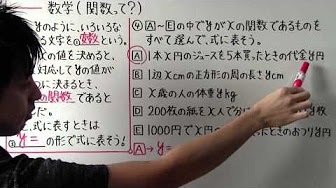 数学(関数って?)
yのように、いろいろな
文字を①変数という。
xの値を決めると、
対応してyの値が
つに決まるとき、
の関数であると
y=
の形で表そう!
④A~Eの中でyがxの関数であるものを
すべて選んで、式に表そう。
A 1本x円のジュースを5本買ったときの代金y円
B 1辺xcmの正方形の周の長さycm
C x歳の人の体重ykg
D 200枚の紙をx人で
E 1000円でx円の
ったときのおつりy円
A → y=